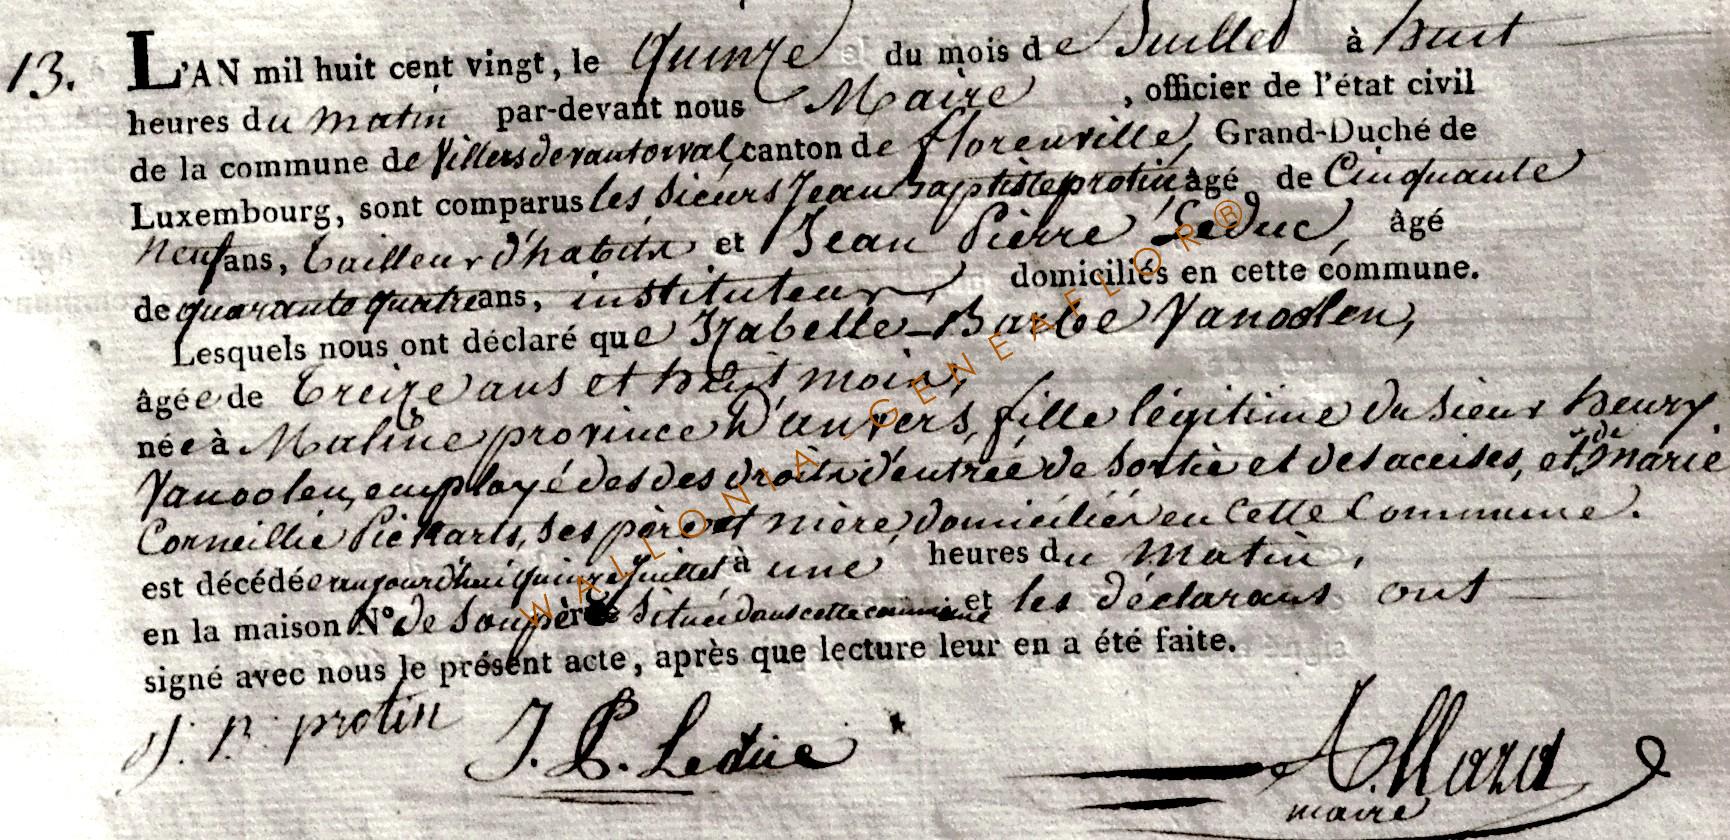 13. L'AN mil huit cent vingt, le quinze du mois de Juillet à huit
heures du matin par-devant nous Maire, officier de l'état civil
de la commune de Villers devant orval, canton de florenville, Grand-Duché de
Luxembourg, sont comparus les Sieurs Jean baptiste protin âgé de Cinquante
neuf ans, tailleur d'habits et Jean Pierre Leduc, âgé
de quarante quatre ans, instituteur, domiciliés en cette commune.
Lesquels nous ont déclaré que Izabelle-Barbe Vanoolen,
âgée de treize ans et huit mois,
née à Maline province D'anvers, fille légitime du Sieur henry
Vanoolen, employé des des droits d'entrée de Sortie et des acceises, et de marie
Corneillie Piekarts, Ses père et mère, domiciliés en cette Commune.
est décédée aujourd'hui quinze Juillet à une heures du matin,
en la maison N° de Son père Située dans cette commune et les déclarans ont
signé avec nous le présent acte, après que lecture leur en a été faite.
J. B. protin J. P. Leduc Allard
maire
WALLONIA-GENEAFLOR®